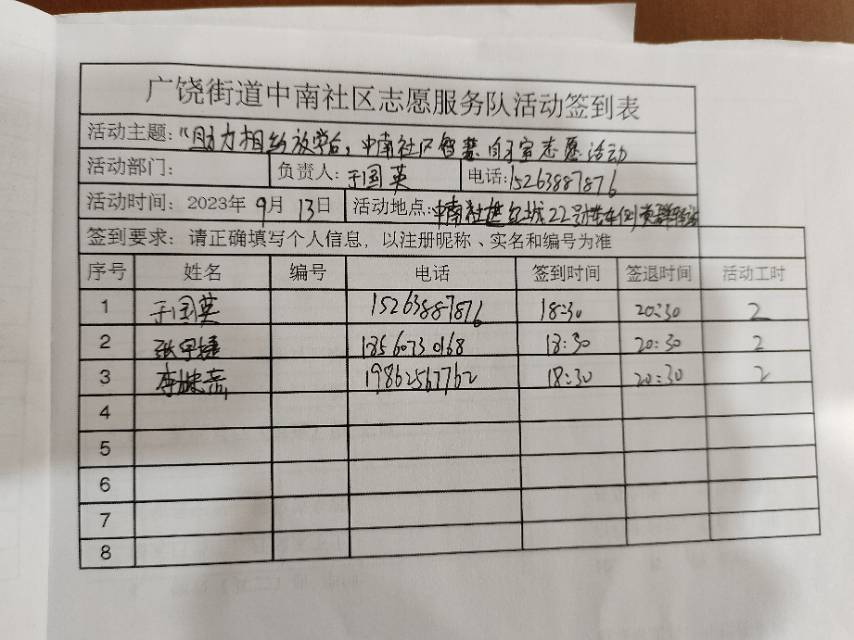 广饶街道中南社区志愿服务队活动签到表
活动主题：《助力相约放学后，中南社区智慧自习室志愿活动
活动部门： 负责人：于国英 电话：15263887876
活动时间：2023年9月13日 活动地点：中南社区 22号
签到要求：请正确填写个人信息，以注册昵称、实名和编号为准
序号 姓名 编号 电话 签到时间 签退时间 活动工时
1 于国英 15263887876 18:30 20:30 2
2 张 18560730168 18:30 20:30 2
3 李 19862567762 18:30 20:30 2
4
5
6
7
8